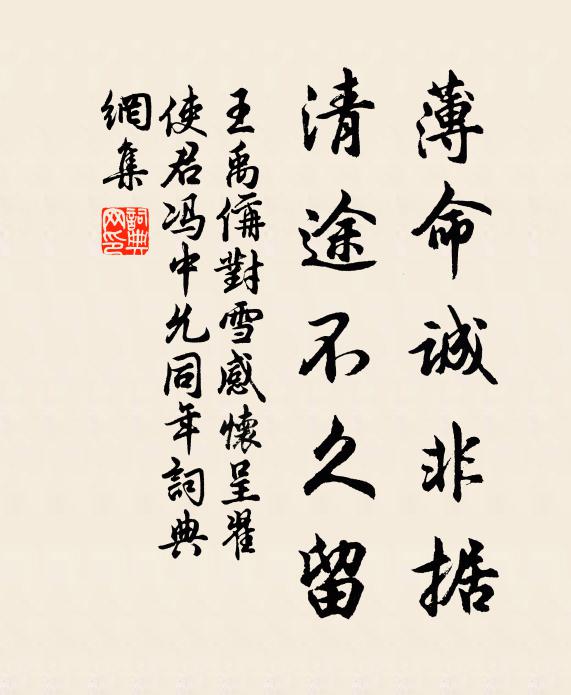 薄命誠非据
清途不久留
王禹偁對雪感懷呈翟
使君馮中允同年詞典
網集
詞典网印